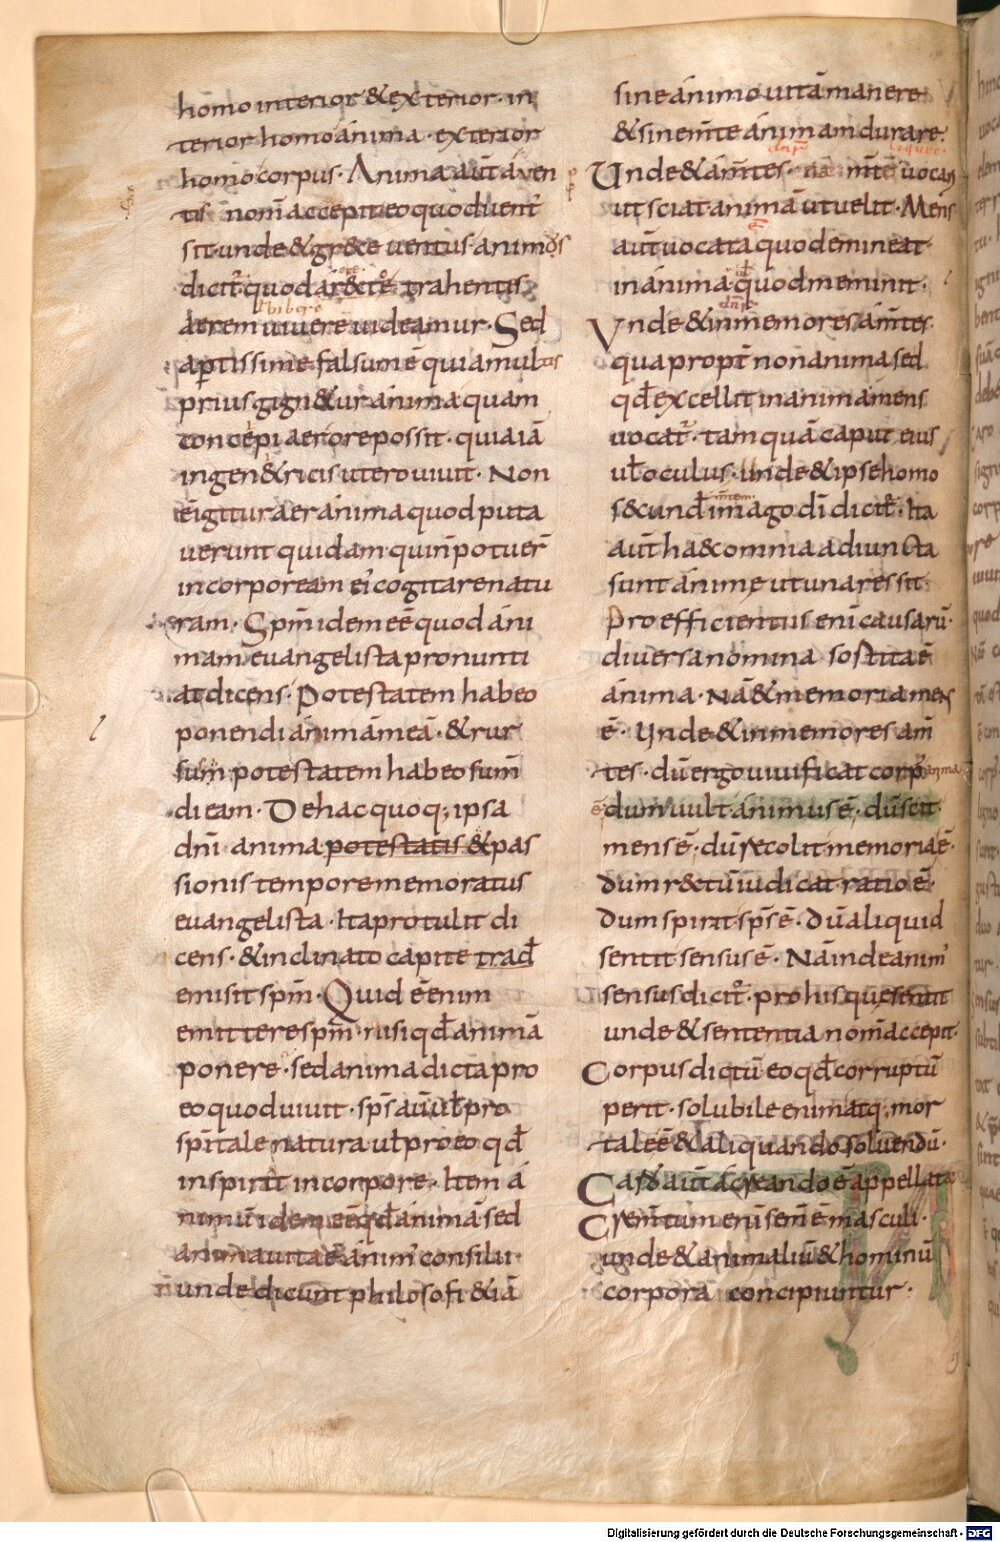 homo interior & exterior · in
terior homo anima · exterior
homo corpus · Anima aūt aven
tis nom̄ accepit eo quod uent'
sit · unde & gr&ce uentus animos
dicit̄ quod ar&ctē trahentes
aerem uiuere uideamur · Sed
aptissime falsum ē quia multis
prius gign&ur anima quam
concepi aer ore possit · quia iā
in gen&ricis utero uiuit · Non
ē igitur aer anima quod puta
uerunt quidam qui n̄ potuer̄
incorpoream ei' cogitare natu
ram · Sp̄m idem eē quod ani
mam euangelista pronunti
at dicens · Potestatem habeo
ponendi animā meā · & rur
sum̄ potestatem habeo sum̄
di eam · De hac quoq; ipsa
dn̄i anima potestatis & pas
sionis tempore memoratus
euangelista · Ita protulit di
cens · & inclinato capite trad̄
emisit sp̄m · Quid ē enim
emittere sp̄m · nisi qđ animā
ponere · sed anima dicta pro
eo quod uiuit · sp̄s aū uł pro
sp̄itale natura uł pro eo qđ
inspirat in corpore · Item a
nimū idem eē qđ anima sed
anima uitae animˀ consilii ·
unde dicunt philosofi & iā
sine animo uitā manere
& sine m̄te animam durare ·
Unde & am̄tes · nā m̄tē uocari
ut sciat animā ut uelit · Mens
aūt uocata quod emineat
in anima quod meminit ·
Vnde & inmemores am̄tes ·
qua propt̄ non anima sed
qđ excellit in anima mens
uocat̄ · tam quā caput eius
uł oculus · Unde & ipse homo
s&cund̄ imago dī dicit̄ · Ita
aūt haec omnia adiuncta
sunt anime ut una res sit
Pro efficientiis enī causarū ·
diuersa nomina sostita ē
anima · Nā & memoria mens
ē · Unde & inmemores am̄
tes · dū ergo uiuificat corp' anima
ē dum uult animus ē · dū scit
mens ē · dū recolit memoria ē ·
Dum r&tū iudicat ratio ē ·
Dum spirat sp̄s ē · Dū aliquid
sentit sensus ē · Nā inde animˀ
sensus dicit̄ · pro his que sentit
unde & sententia nom̄ accepit ·
Corpus dictū eo qđ corruptū
perit · solubile enim atq; mor
tale ē & aliquando soluendū ·
Caro aūt a creando ē appellata
Crem̄tum enī sem̄ ē masculi ·
unde & animaliū & hominū
corpora concipiuntur ·
Digitalisierung gefördert durch die Deutsche Forschungsgemeinschaft - DFG